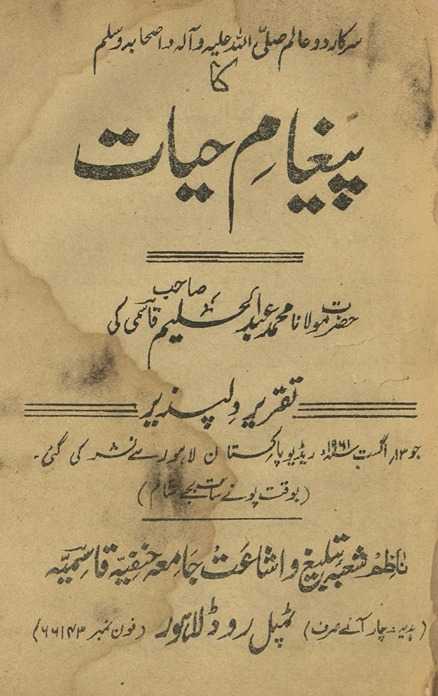 سرکار دو عالم صلی اللہ علیہ و آلہ و اصحابہ وسلم
کا
پیغامِ حیات
حضرت مولانا محمد عبد الحلیم صاحب قاسمی کی
تقریر دلپذیر
جو ۱۳ اگست ۱۹۶۱ء ریڈیو پاکستان لاہور سے نشر کی گئی۔
(بوقت پونے سات بجے شام)
ناظم شعبہ تبلیغ و اشاعت جامعہ حنفیہ قاسمیہ
(ہدیہ: چار آنے صرف) ٹمپل روڈ لاہور (فون نمبر ۶۶۱۴۳)